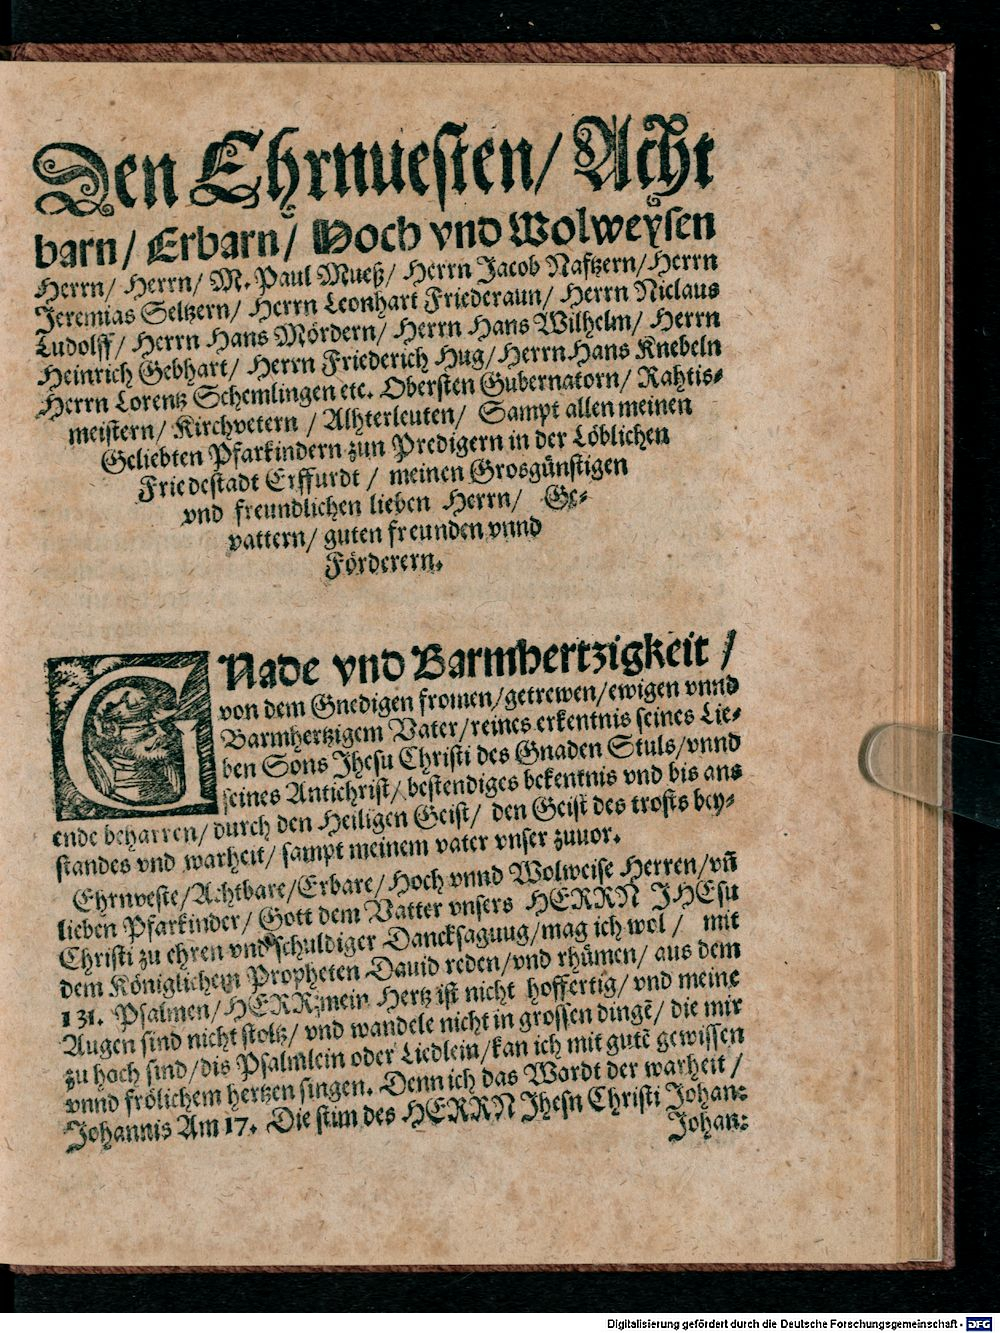 Den Ehrnuesten/ Acht
barn/ Erbarn/ Hoch vnd Wolweysen
Herrn/ Herrn/ M. Paul Mueß/ Herrn Jacob Naftzern/ Herrn
Jeremias Seltzern/ Herrn Leonhart Friederaun/ Herrn Niclaus
Ludolff/ Herrn Hans Mördern/ Herrn Hans Wilhelm/ Herrn
Heinrich Gebhart/ Herrn Friederich Hug/ Herrn Hans Knebeln
Herrn Lorentz Schemlingen etc. Obersten Gubernatorn/ Rahtis-
meistern/ Kirchvetern/ Alhterleuten/ Sampt allen meinen
Geliebten Pfarkindern zun Predigern in der Löblichen
Friedestadt Erffurdt/ meinen Grosgünstigen
vnd freundlichen lieben Herrn/ Ge-
vattern/ guten freunden vnnd
Förderern.
GNade vnd Barmhertzigkeit/
von dem Gnedigen fromen/ getrewen/ ewigen vnnd
Barmhertzigem Vater/ reines erkentnis seines Lie-
ben Sons Jhesu Christi des Gnaden Stuls/ vnnd
seines Antichrist/ bestendiges bekentnis vnd bis ans
ende beharren/ durch den Heiligen Geist/ den Geist des trosts bey-
standes vnd warheit/ sampt meinem vater vnser zuuor.
Ehrnveste/ Achtbare/ Erbare/ Hoch vnnd Wolweise Herren/ vn̄
lieben Pfarkinder/ Gott dem Vatter vnsers HERRN JHEsu
Christi zu ehren vnd schuldiger Dancksaguug/ mag ich wol/ mit
dem Königlichem Propheten Dauid reden/ vnd rhümen/ aus dem
131. Psalmen/ HERR mein Hertz ist nicht hoffertig/ vnd meine
Augen sind nicht stoltz/ vnd wandele nicht in grossen dingē/ die mir
zu hoch sind/ dis Psalmlein oder Liedlein/ kan ich mit gutē gewissen
vnnd frölichem hertzen singen. Denn ich das Wordt der warheit/
Johannis Am 17. Die stim des HERRN Jhesn Christi Johan:
Johan:
Digitalisierung gefördert durch die Deutsche Forschungsgemeinschaft - DFG